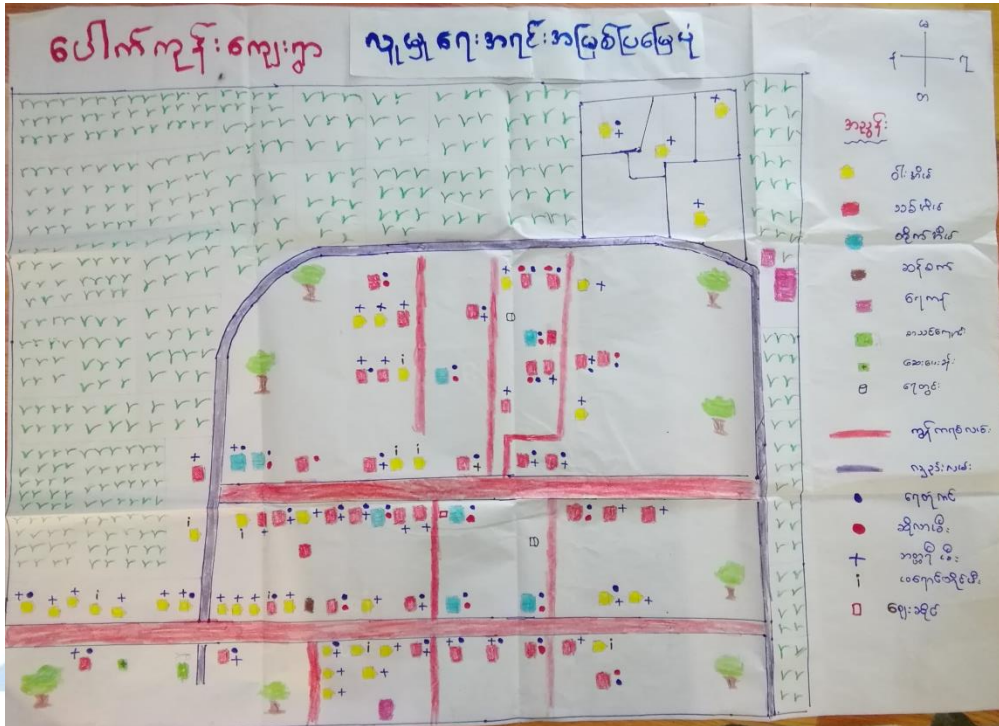 ပေါက်ကုန်းကျေးရွာ လူမှုရေးအရင်းအမြစ်ပြမြေပုံ
မ
န
တ
အညွှန်း
ဝါးအိမ်
သစ်အိမ်
တိုက်အိမ်
ဆန်စက်
ရေကန်
စာသင်ကျောင်း
ဆေးပေးခန်း
ရေတွင်း
ကွန်ကရစ်လမ်း
ရေတုံကင်
ဆိုလာမီး
ဘတ္ထရီမီး
ဖယောင်းတိုင်မီး
ဈေးဆိုင်